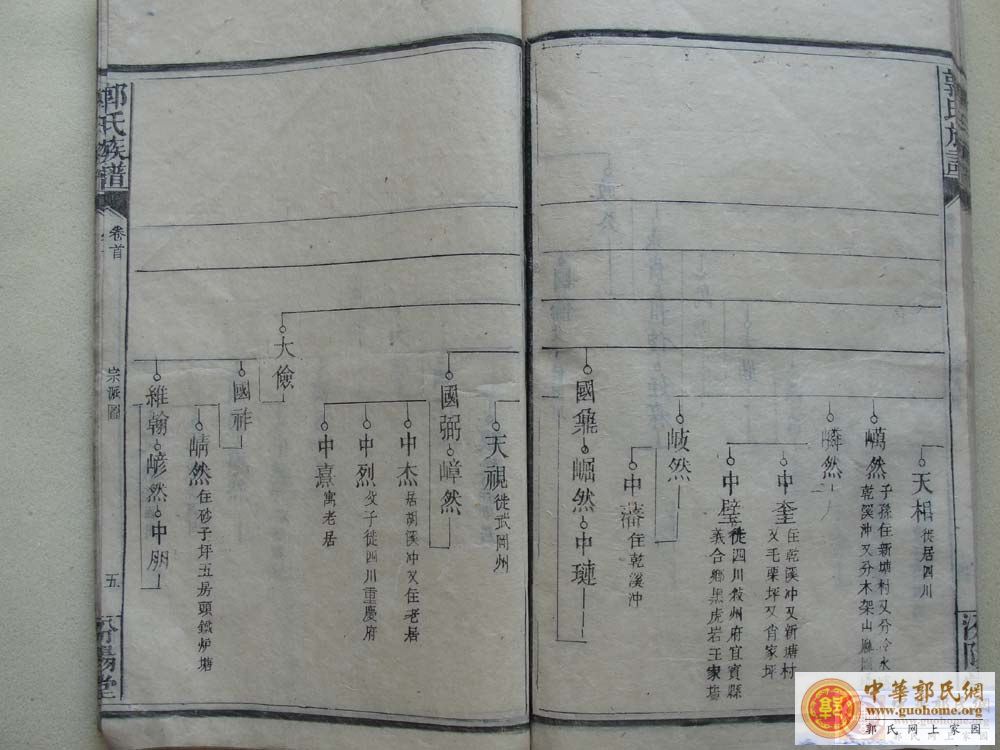 天相 徙居四川
㠢然 子孫住新塘村又分冷水
乾溪冲又分木架山
嶙然
中奎 住乾溪冲又新塘村
又毛栗坪又肖家坪
中璧 徙四川敘州府宜賓縣
義合鄉黑虎岩王家塲
岐然
中藩 住乾溪冲
國鼐 崛然 中璉
天視 徙武岡州
國弼 嶂然
中杰 居胡溪冲又住老居
中烈 父子徙四川重慶府
中熹 寓老居
大儉
國祚
崝然 住砂子坪五房頭鐵炉塘
維翰 嵃然 中朋
郭氏族譜
卷首
宗派圖
五
汾陽堂
中華郭氏網
www.guohome.org
郭氏网上家园